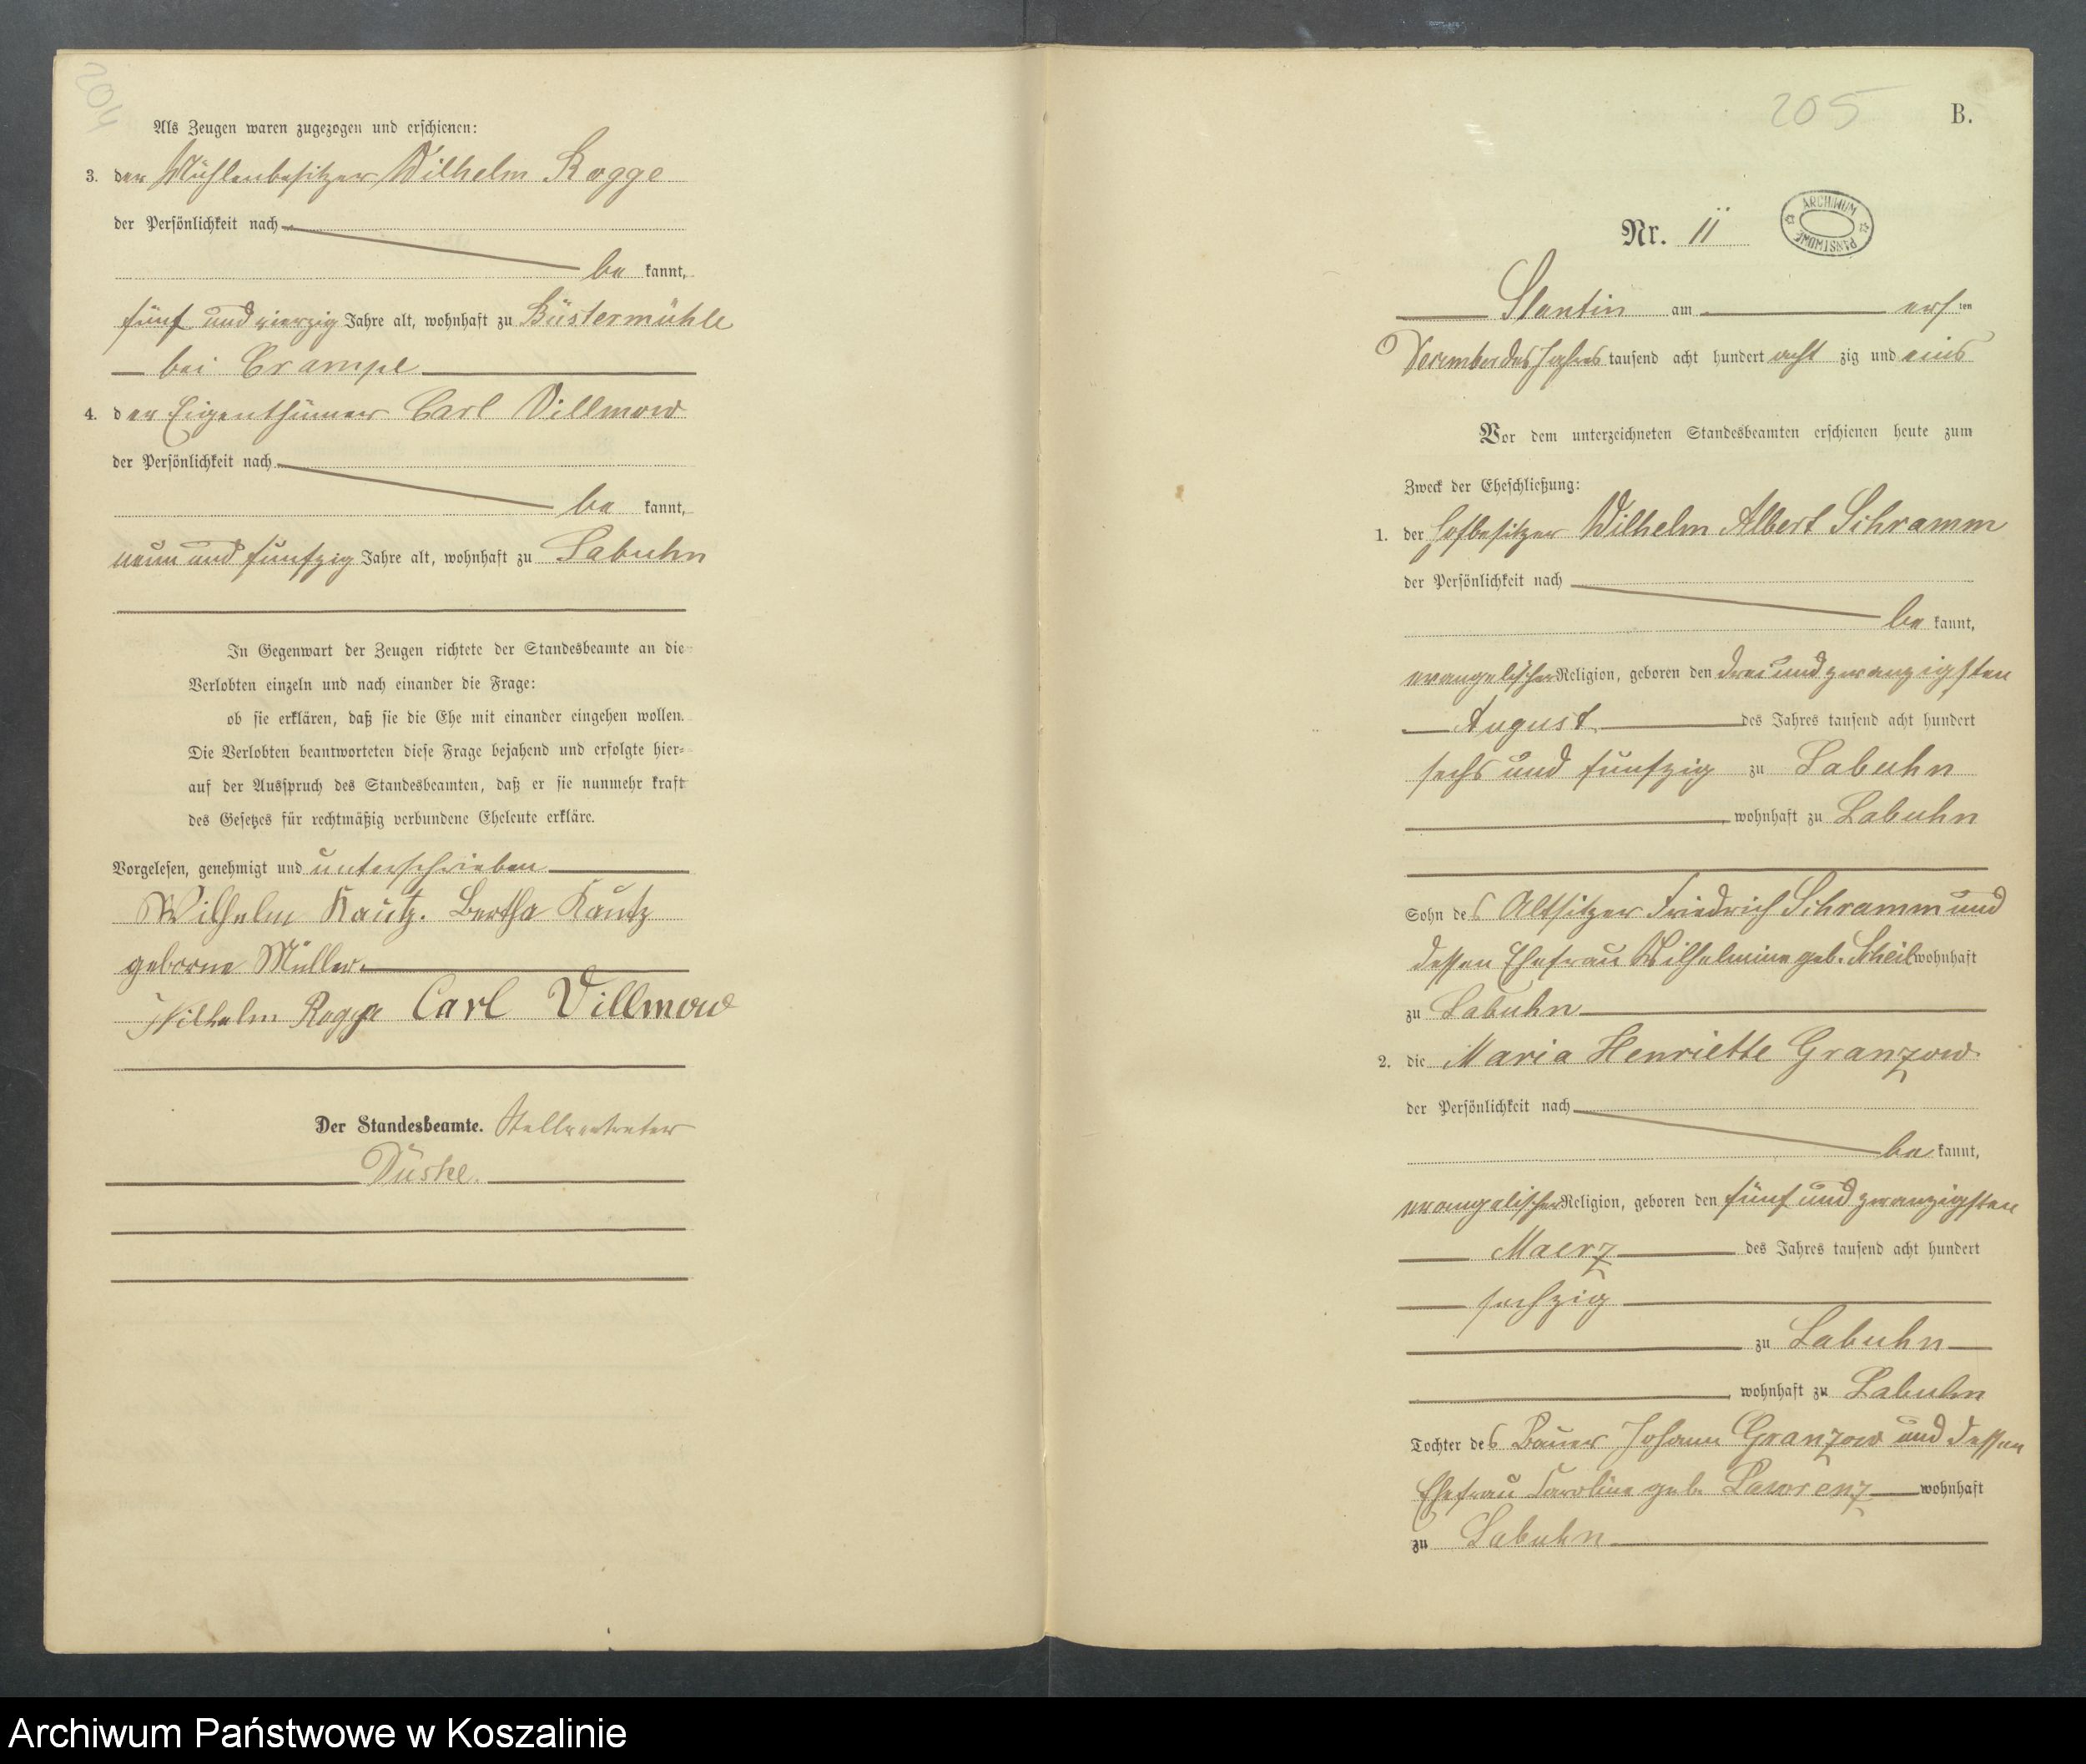 204
Als Zeugen waren zugezogen und erschienen:
3. der Mühlenbesitzer Wilhelm Rogge
der Persönlichkeit nach
be kannt,
fünf und vierzig Jahre alt, wohnhaft zu Büstermühle
bei Crampe
4. der Eigenthümer Carl Villmow
der Persönlichkeit nach
be kannt,
neun und funfzig Jahre alt, wohnhaft zu Labuhn
In Gegenwart der Zeugen richtete der Standesbeamte an die
Verlobten einzeln und nach einander die Frage:
ob sie erklären, daß sie die Ehe mit einander eingehen wollen.
Die Verlobten beantworteten diese Frage bejahend und erfolgte hier-
auf der Ausspruch des Standesbeamten, daß er sie nunmehr kraft
des Gesetzes für rechtmäßig verbundene Eheleute erkläre.
Vorgelesen, genehmigt und unterschrieben
Wilhelm Kautz. Bertha Kautz
geborne Müller.
Wilhelm Rogge Carl Villmow
Der Standesbeamte. Stellvertreter
Düske.
205 B.
Nr. 11
ARCHIWUM PAŃSTWOWE
Slantin am ersten
Dezember des Jahres tausend acht hundert acht zig und eins
Vor dem unterzeichneten Standesbeamten erschienen heute zum
Zweck der Eheschließung:
1. der Hofbesitzer Wilhelm Albert Schramm
der Persönlichkeit nach
be kannt,
evangelischer Religion, geboren den drei und zwanzigsten
August des Jahres tausend acht hundert
sechs und funfzig zu Labuhn
, wohnhaft zu Labuhn
Sohn des Altsitzer Friedrich Schramm und
dessen Ehefrau Wilhelmine geb. Scheil wohnhaft
zu Labuhn
2. die Maria Henriette Granzow
der Persönlichkeit nach
be kannt,
evangelischer Religion, geboren den fünf und zwanzigsten
Maerz des Jahres tausend acht hundert
sechzig
zu Labuhn
, wohnhaft zu Labuhn
Tochter des Bauer Johann Granzow und dessen
Ehefrau Caroline geb. Lawrenz wohnhaft
zu Labuhn
Archiwum Państwowe w Koszalinie